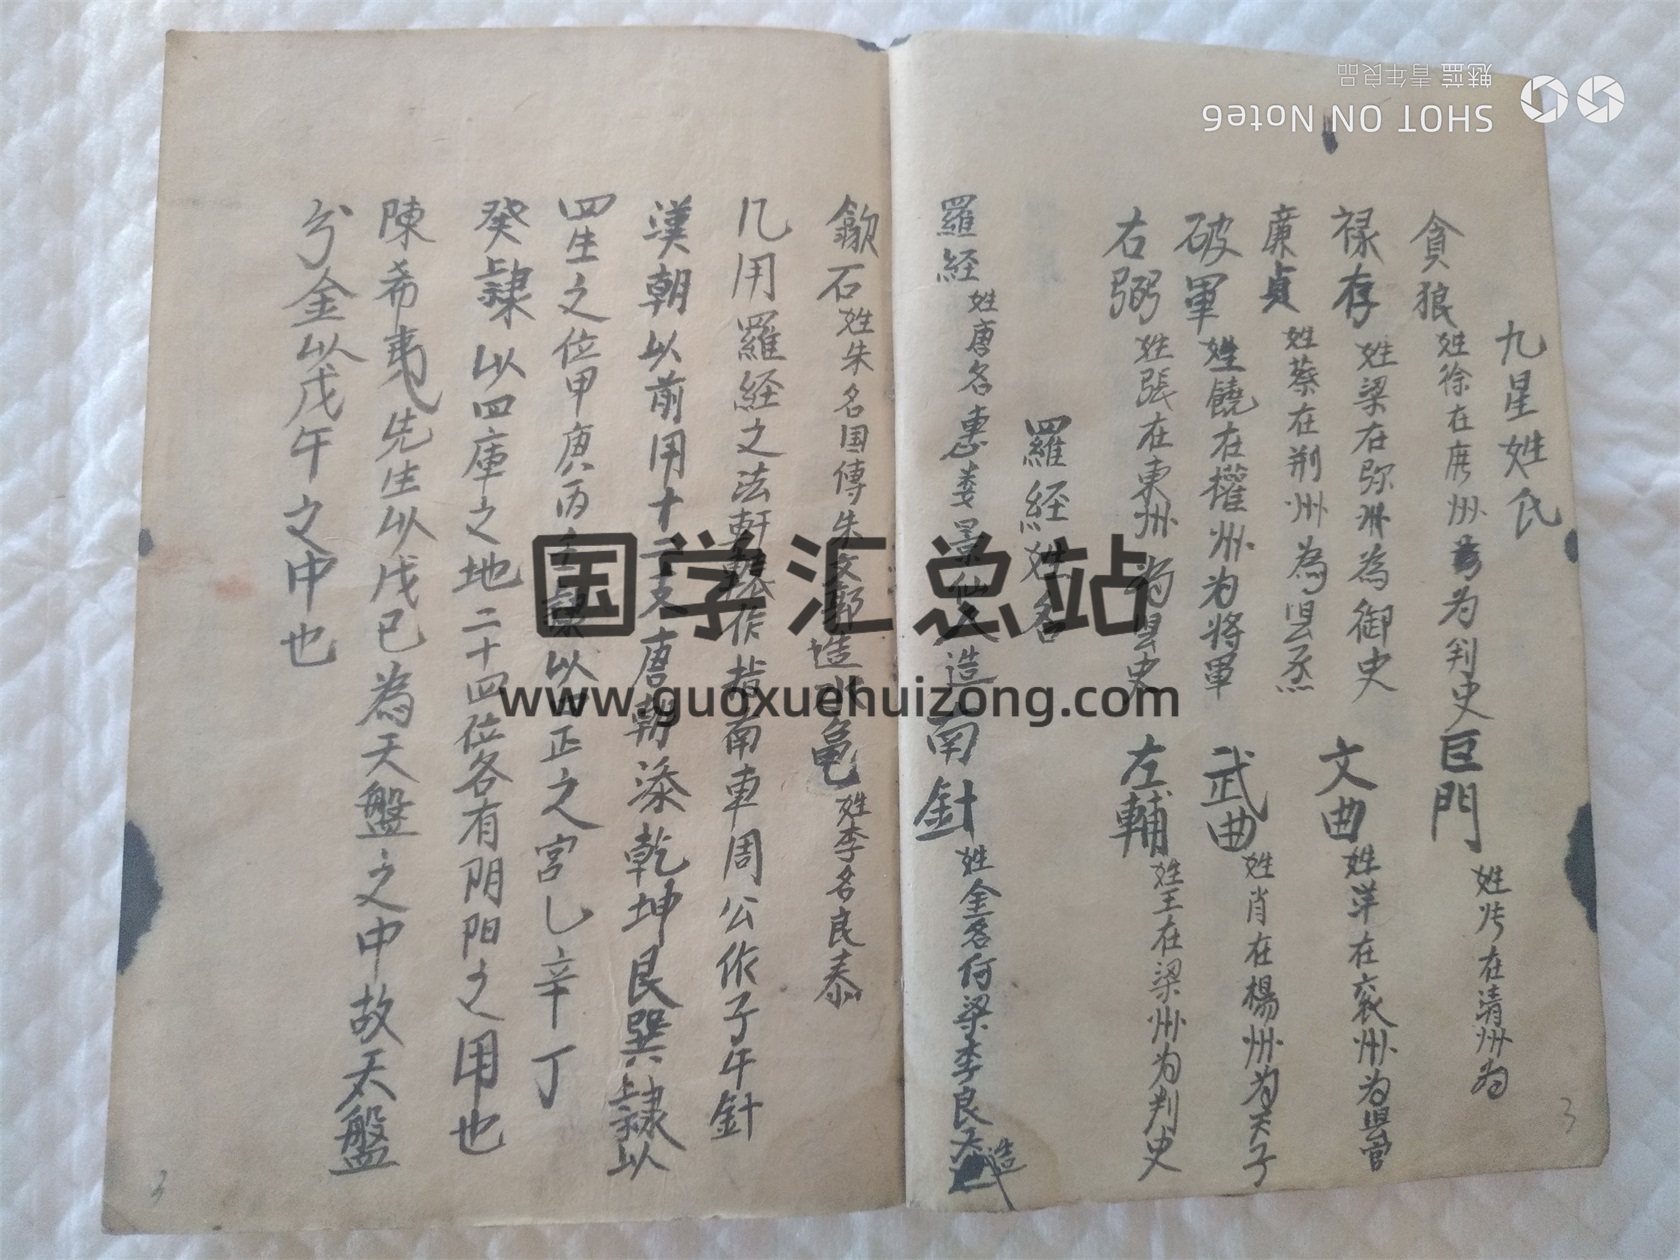 九星姓氏
貪狼 姓徐在 州 为判史 巨門 姓 在清州为
禄存 姓梁在 州為御史 文曲 姓萍在 州为 官
廉貞 姓蔡在荆州為县丞
破軍 姓饒在權州为將軍 武曲 姓肖在楊州为天子
右弼 姓張在東州为县史 左輔 姓王在梁州为判史
羅経姓名
羅経 姓唐名惠娄景仙人造 南針 姓金名何梁李良 造
歙石 姓朱名国傳朱文郭造 水亀 姓李名良泰
凡用羅経之法軒轅作指南車周公作子午針
漢朝以前用十二支唐朝添乾坤艮巽隸以
四生之位甲庚丙壬隸以四正之宮乚辛丁
癸隸以四庫之地二十四位各有阴阳之用也
陳希夷先生以戊已為天盤之中故天盤
兮金以戊午之中也
3
3
国学汇总站
www.guoxuehuizong.com
SHOT ON Note6
魅蓝 青年良品